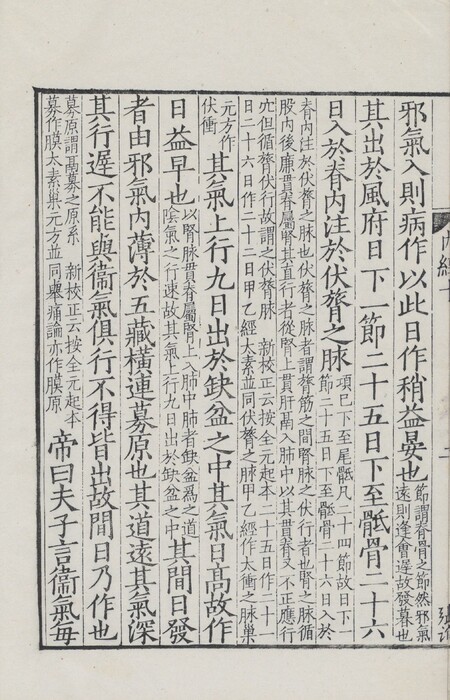 邪氣入則病作以此日作稍益晏也
節謂脊骨之節然邪氣
遠則逢會遲故發暮也
其出於風府日下一節二十五日下至骶骨二十六
日入於脊內注於伏膂之脉
項已下至尾骶凡二十四節故日下一
節二十五日下至骶骨二十六日入於
脊內注於伏膂之脉也伏膂之脉者謂膂筋之間腎脉之伏行者也腎之脉循
股內後廉貫脊屬腎其直行者從腎上貫肝鬲入肺中以其貫脊又不正應行
宂但循膂伏行故謂之伏膂脉 新校正云按全元起本二十五日作二十一
日二十六日作二十二日甲乙經太素並同伏膂之脉甲乙經作太衝之脉巢
元方作
伏衝
其氣上行九日出於缺盆之中其氣日高故作
日益早也
以腎脉貫脊屬腎上入肺中肺者缺盆爲之道
陰氣之行速故其氣上行九日出於缺盆之中
其間日發
者由邪氣內薄於五藏橫連募原也其道遠其氣深
其行遲不能與衞氣俱行不得皆出故間日乃作也
募原謂鬲募之原系 新校正云按全元起本
募作膜太素巢元方並同舉痛論亦作膜原
帝曰夫子言衞氣每